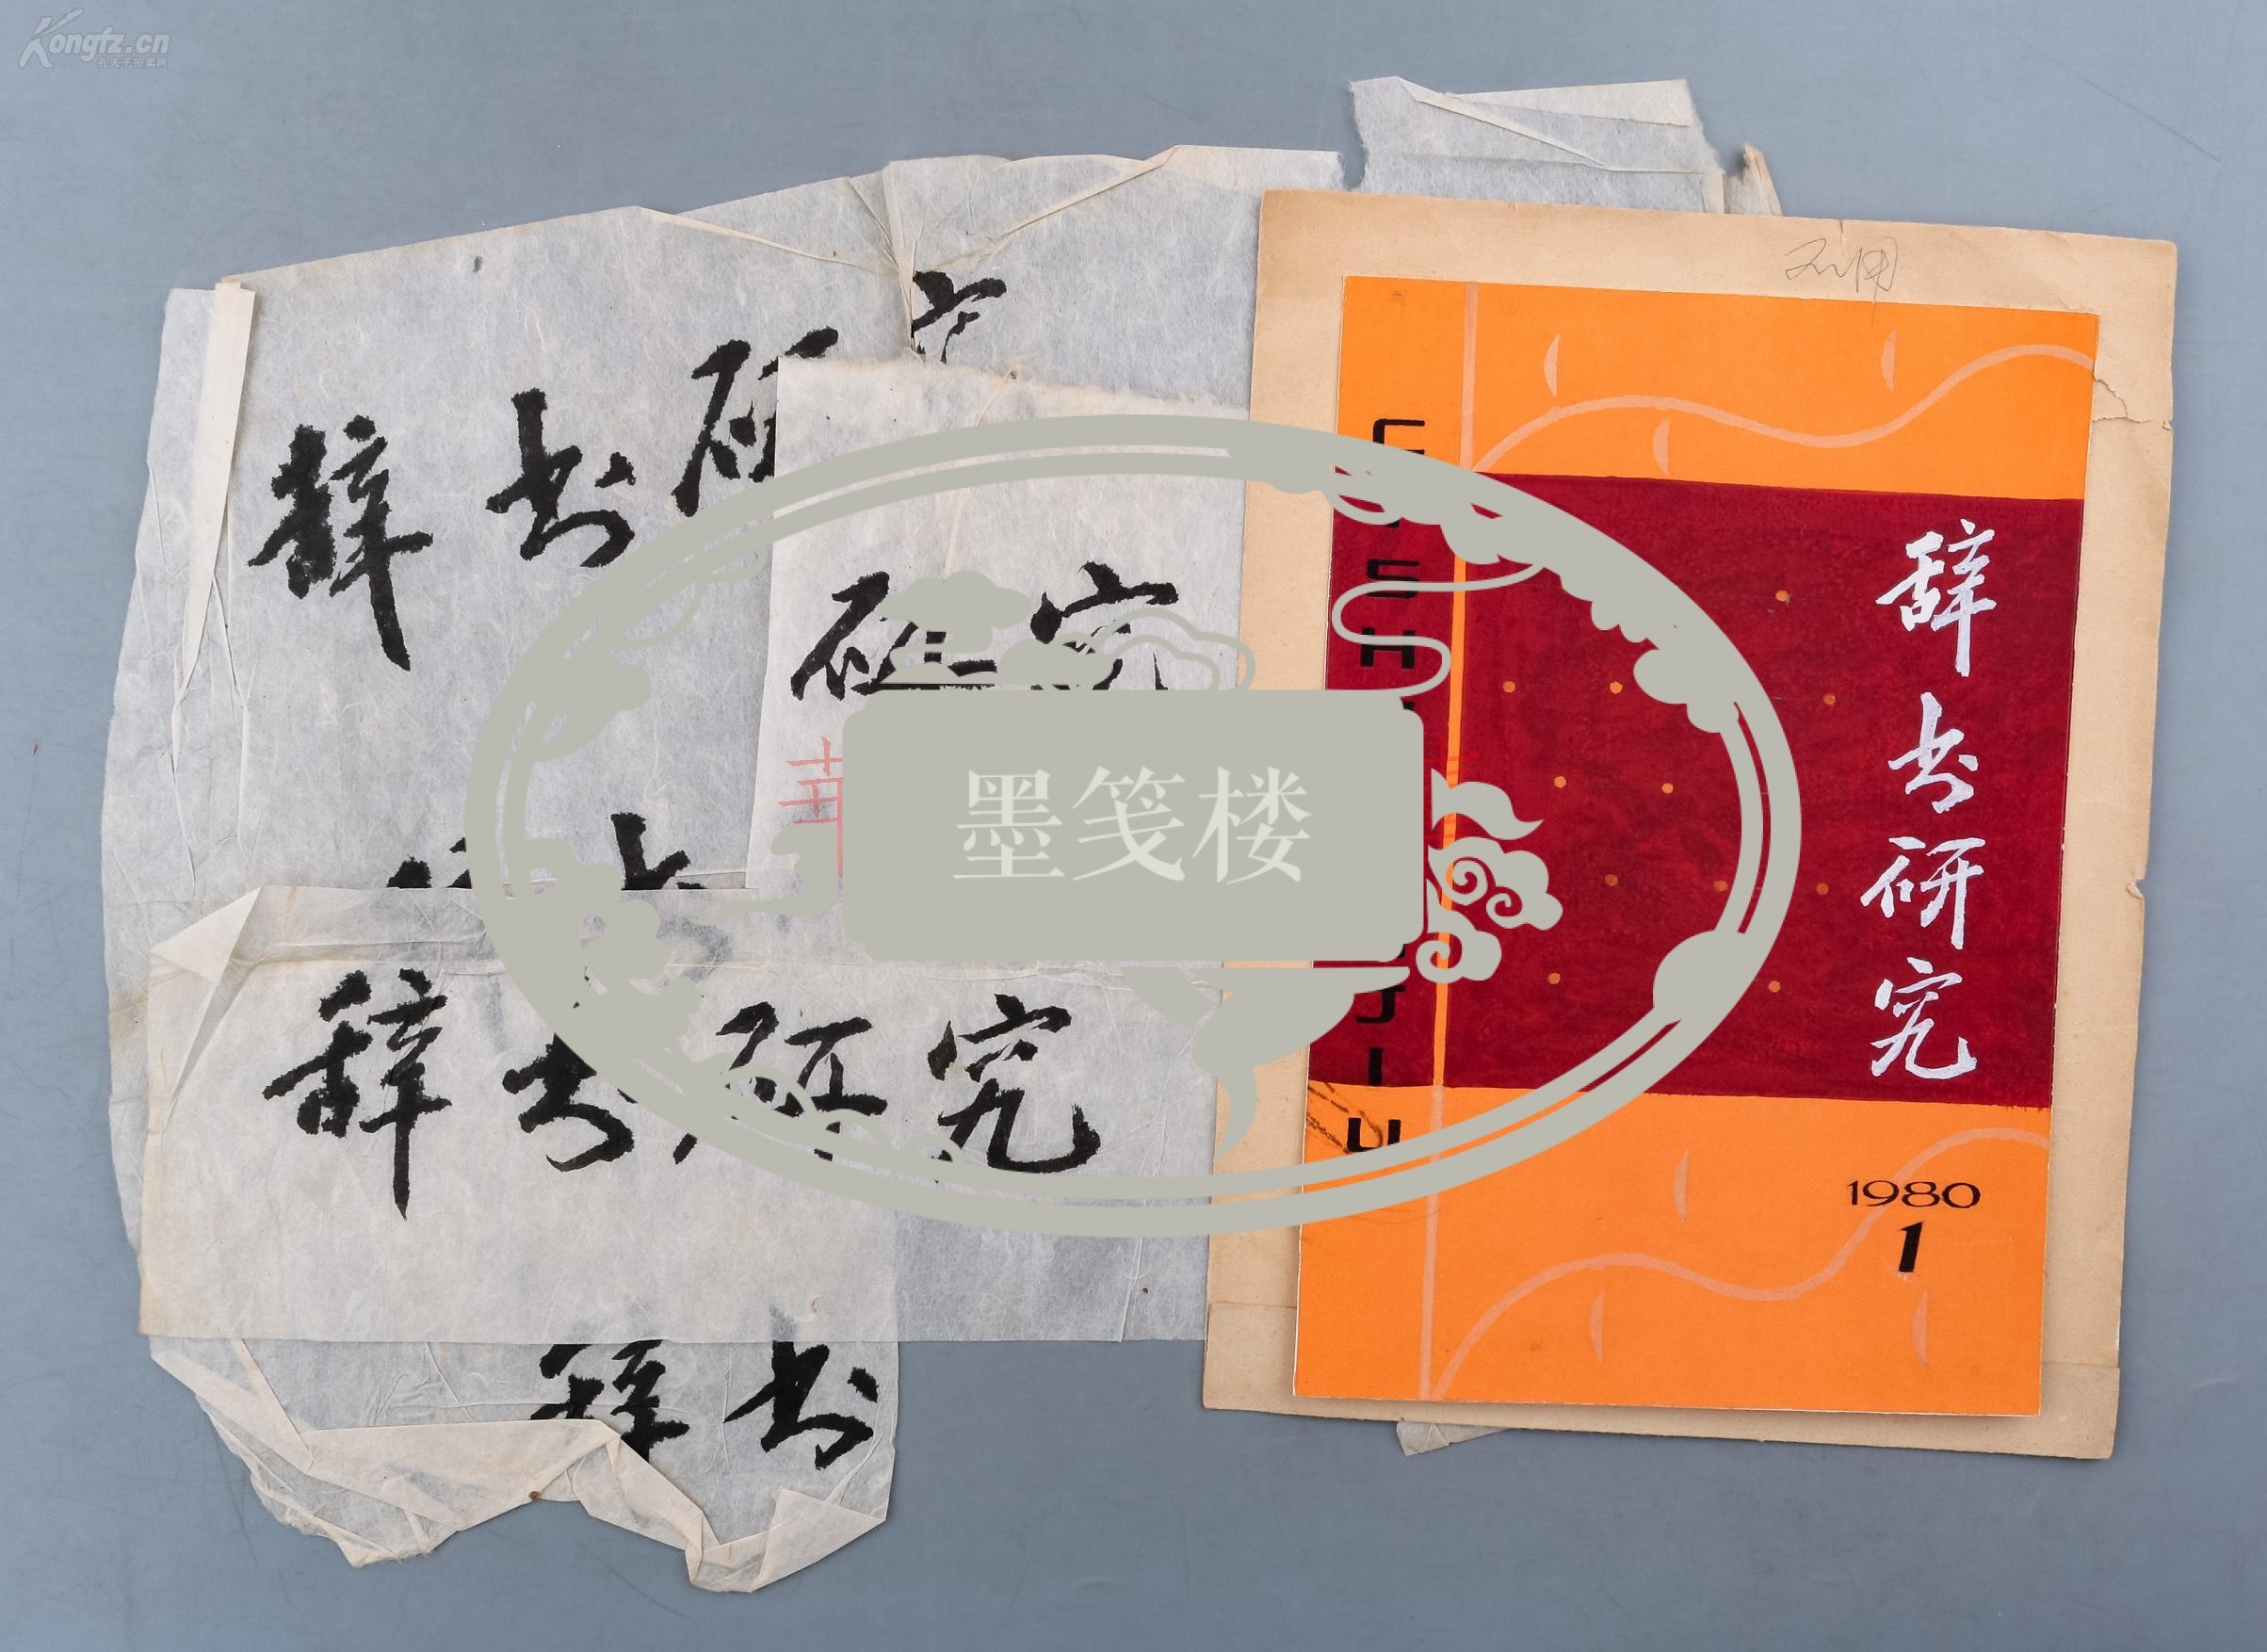 Kongfz.cn
孔夫子拍卖网
辞书研究
研究
辞书研究
辞书
墨笺楼
不用
辞书研究
1980
1